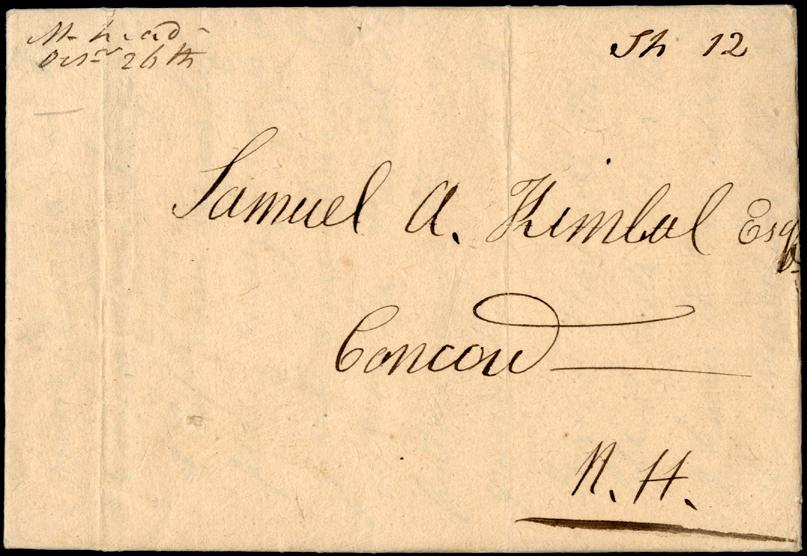 M. head
Octr 26th
Sh 12
Samuel A. Kimbal Esq
Concord
N. H.